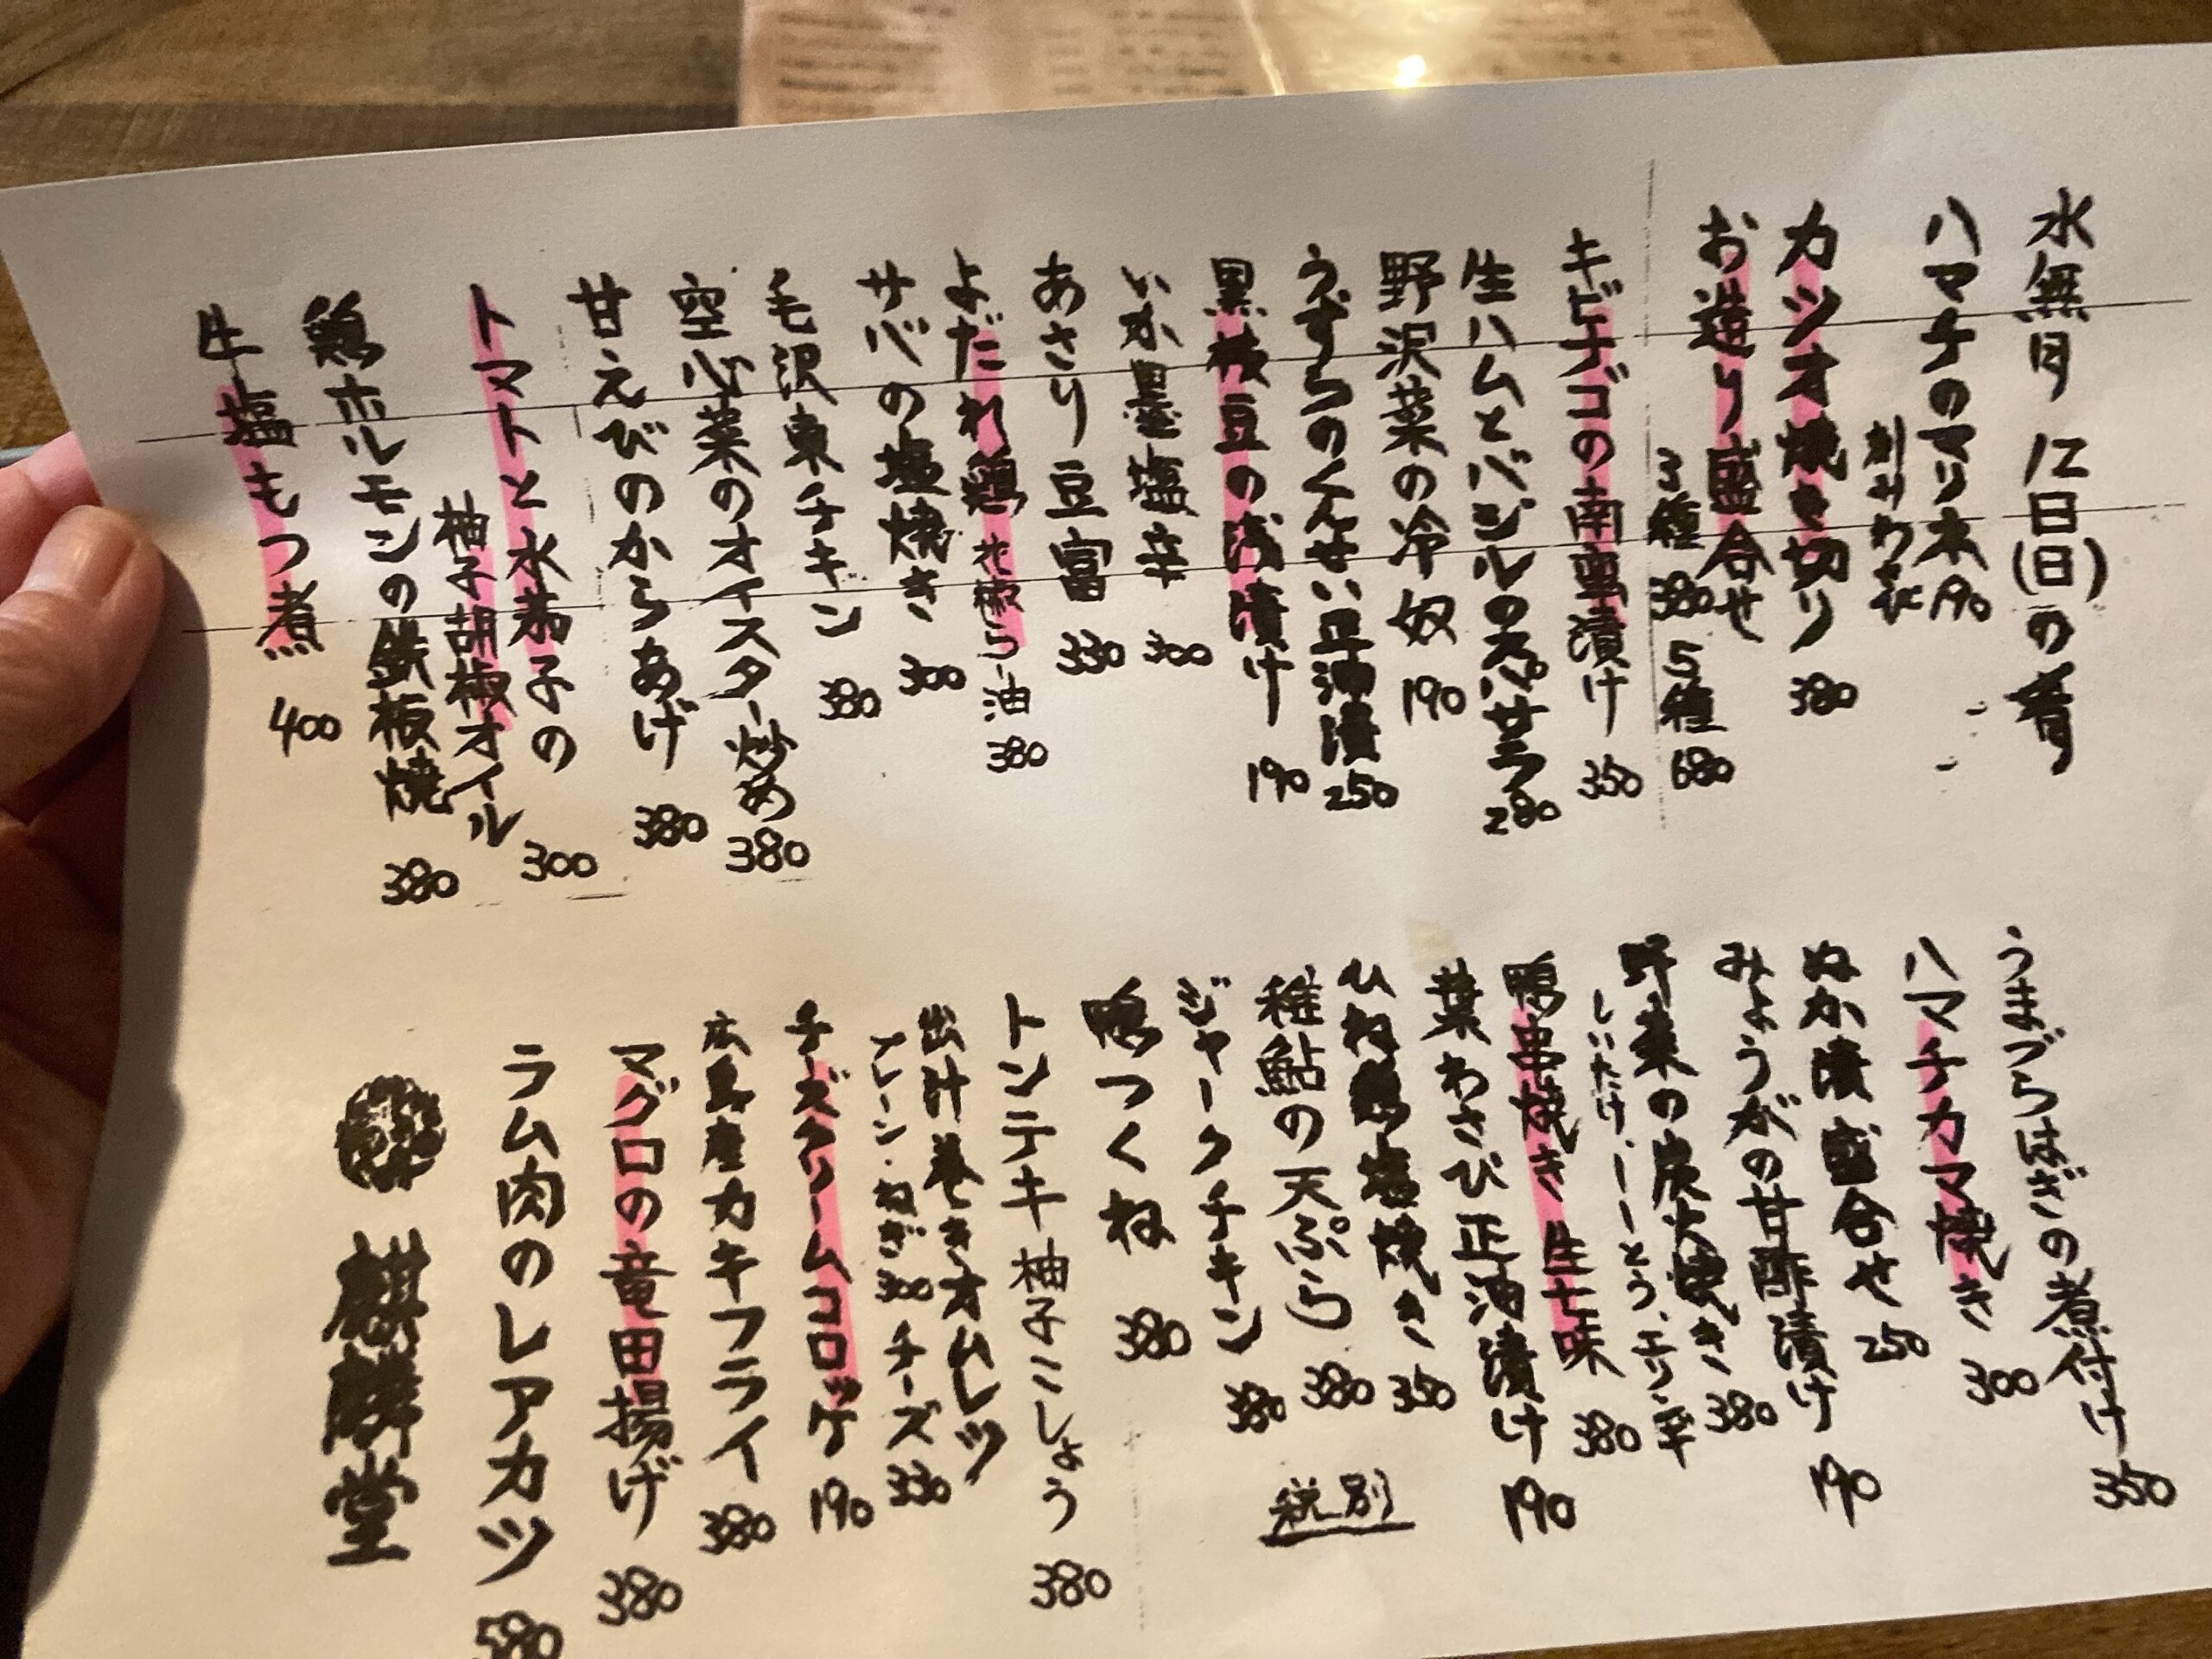 水無月 12日(日)の肴
ハマチのすい末 190
カシオ焼き切り 380
お造り盛合せ
3種 380 5種 680
キビナゴの南蛮漬け 350
生ハムとバジルのスパサラ 280
野沢菜の冷奴 190
うずらのくんせい正油漬 250
黒枝豆の浅漬け 190
いか 300
あさり豆富 330
よだれ鶏 ホ割ら-油 380
サバの塩焼き 300
毛沢東チキン 380
空心菜のオイスター炒め 380
甘えびのからあげ 380
トマトと水茄子の
柚子胡椒オイル 300
鶏ホルモンの鉄板焼 380
牛塩もつ煮 400
うまづらはぎの煮付け 350
ハマチカマ焼き 300
ぬか漬盛合せ 250
みょうがの甘酢漬け 190
野菜の炭火焼き 380
しいたけ、
鴨串焼き 生七味 380
葉わさび正油漬け 190
ひね鶏塩焼き 350
稚鮎の天ぷら 380
ジャークチキン 380
鴨つくね 380
トンテキ 柚子こしょう 380
出汁巻きオムレツ
プレーン・ねぎ 300 チーズ 330
チーズクリームコロッケ 190
広島産カキフライ 380
マグロの竜田揚げ 380
ラム肉のレアカツ 580
麒麟堂
税別